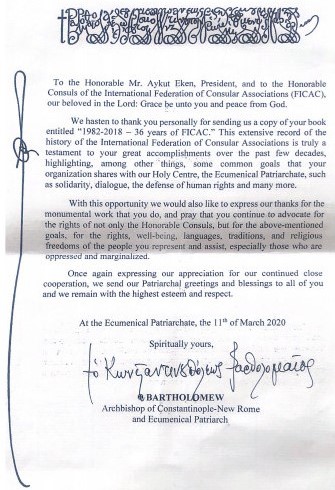 To the Honorable Mr. Aykut Eken, President, and to the Honorable
Consuls of the International Federation of Consular Associations (FICAC),
our beloved in the Lord: Grace be unto you and peace from God.
We hasten to thank you personally for sending us a copy of your book
entitled “1982-2018 – 36 years of FICAC.” This extensive record of the
history of the International Federation of Consular Associations is truly a
testament to your great accomplishments over the past few decades,
highlighting, among other things, some common goals that your
organization shares with our Holy Centre, the Ecumenical Patriarchate, such
as solidarity, dialogue, the defense of human rights and many more.
With this opportunity we would also like to express our thanks for the
monumental work that you do, and pray that you continue to advocate for
the rights of not only the Honorable Consuls, but for the above-mentioned
goals, for the rights, well-being, languages, traditions, and religious
freedoms of the people you represent and assist, especially those who are
oppressed and marginalized.
Once again expressing our appreciation for our continued close
cooperation, we send our Patriarchal greetings and blessings to all of you
and we remain with the highest esteem and respect.
At the Ecumenical Patriarchate, the 11th of March 2020
Spiritually yours,
BARTHOLOMEW
Archbishop of Constantinople-New Rome
and Ecumenical Patriarch